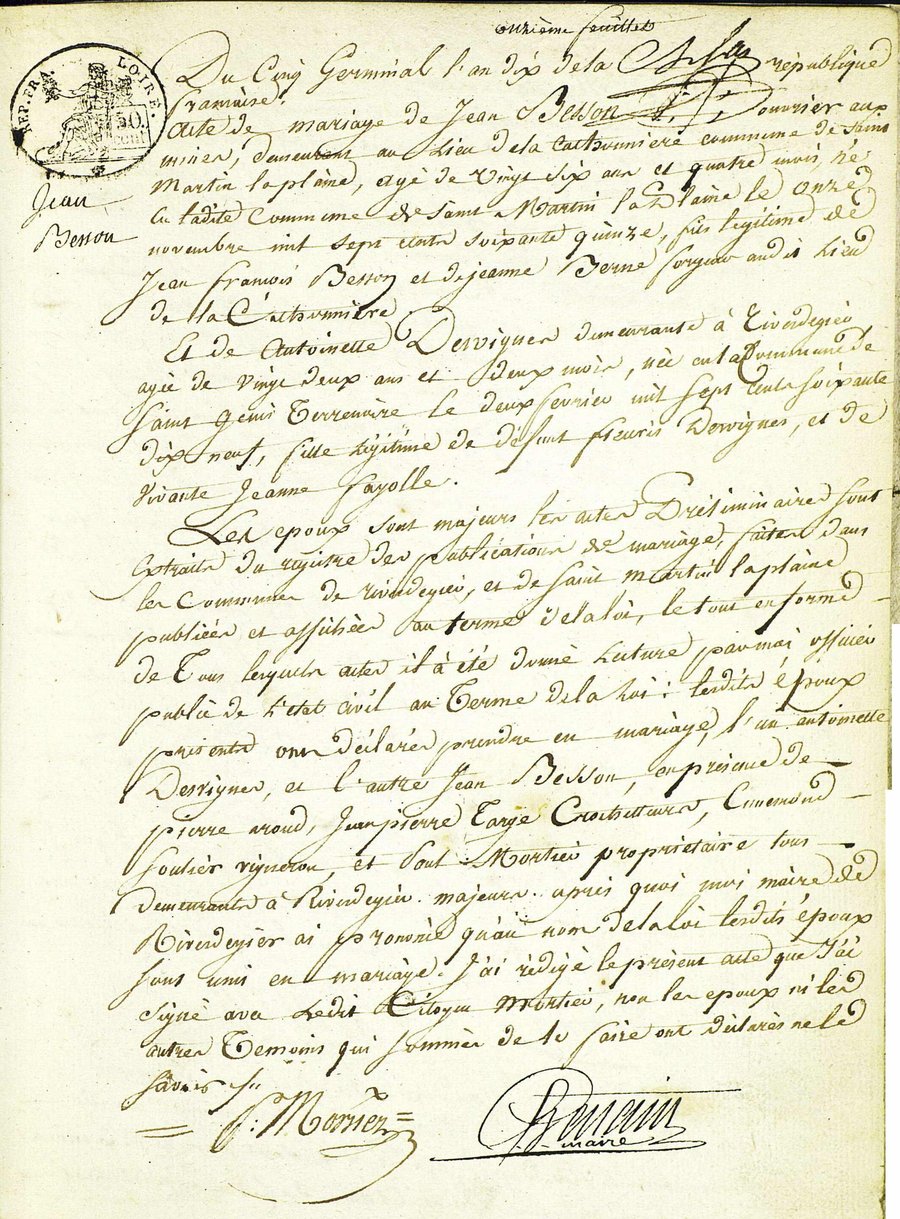 onzième feuillet
REP. FRA. LOIRE.
50. CENT
Du Cinq Germinal l'an dix de la république
francaise.
Acte de mariage de Jean Besson ouvrier aux
mines, demeurant au Lieu de la Cathonnière commune de Saint
Martin laplaine, agé de vingt six ans et quatre mois, né
en ladite Commune de Saint Martin la Plaine le onze
novembre mil sept cents soixante quinze, fils légitime de
Jean francois Besson et de jeanne Berne forgeur audit Lieu
de la Cathonnière
Jean
Besson
Et de Antoinette Dervignes demeurante à Riverdegier
agée de vingt deux ans et deux mois, née en la Commune de
Saint genis Terrenoire le deux fevrier mil sept cents soixante
dix neuf, fille légitime de défunt fleuris Dervignes, et de
vivante Jeanne fayolle.
Les epoux sont majeurs les actes Préliminaires sont
extraits du registre des publications de mariage, faites dans
les Communes de riverdegier, et de Saint martin laplaine
publiées et affichées au terme de la loi, le tout en forme
de Tous lesquels actes il à été donné lecture par moi officier
public de L'etat civil au Terme de la Loi : lesdits époux
présents ont déclarés prendre en mariage, l'un antoinette
Dervignes, et l'autre Jean Besson, en présence de
pierre aroud, Jean pierre Targe Crocheteurs,
soulier vigneron, et Paul Mortier propriétaire tous
demeurants à Riverdegier majeurs. après quoi moi maire de
Riverdegier ai prononcé qu'au nom de la loi lesdits époux
sont unis en mariage. J'ai rédigé le présent acte que J'ai
signé avec Ledit Citoyen Mortier, non les epoux ni les
autres Temoins qui sommés de le faire ont déclarés ne le
savoir
P. Mortier
maire